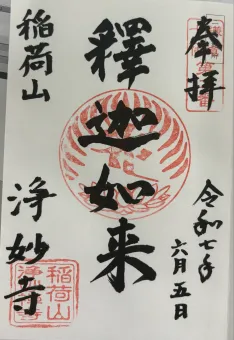 奉拝
令和七年
六月五日
釋迦如来
稲荷山
浄妙寺
稲荷山
浄妙寺